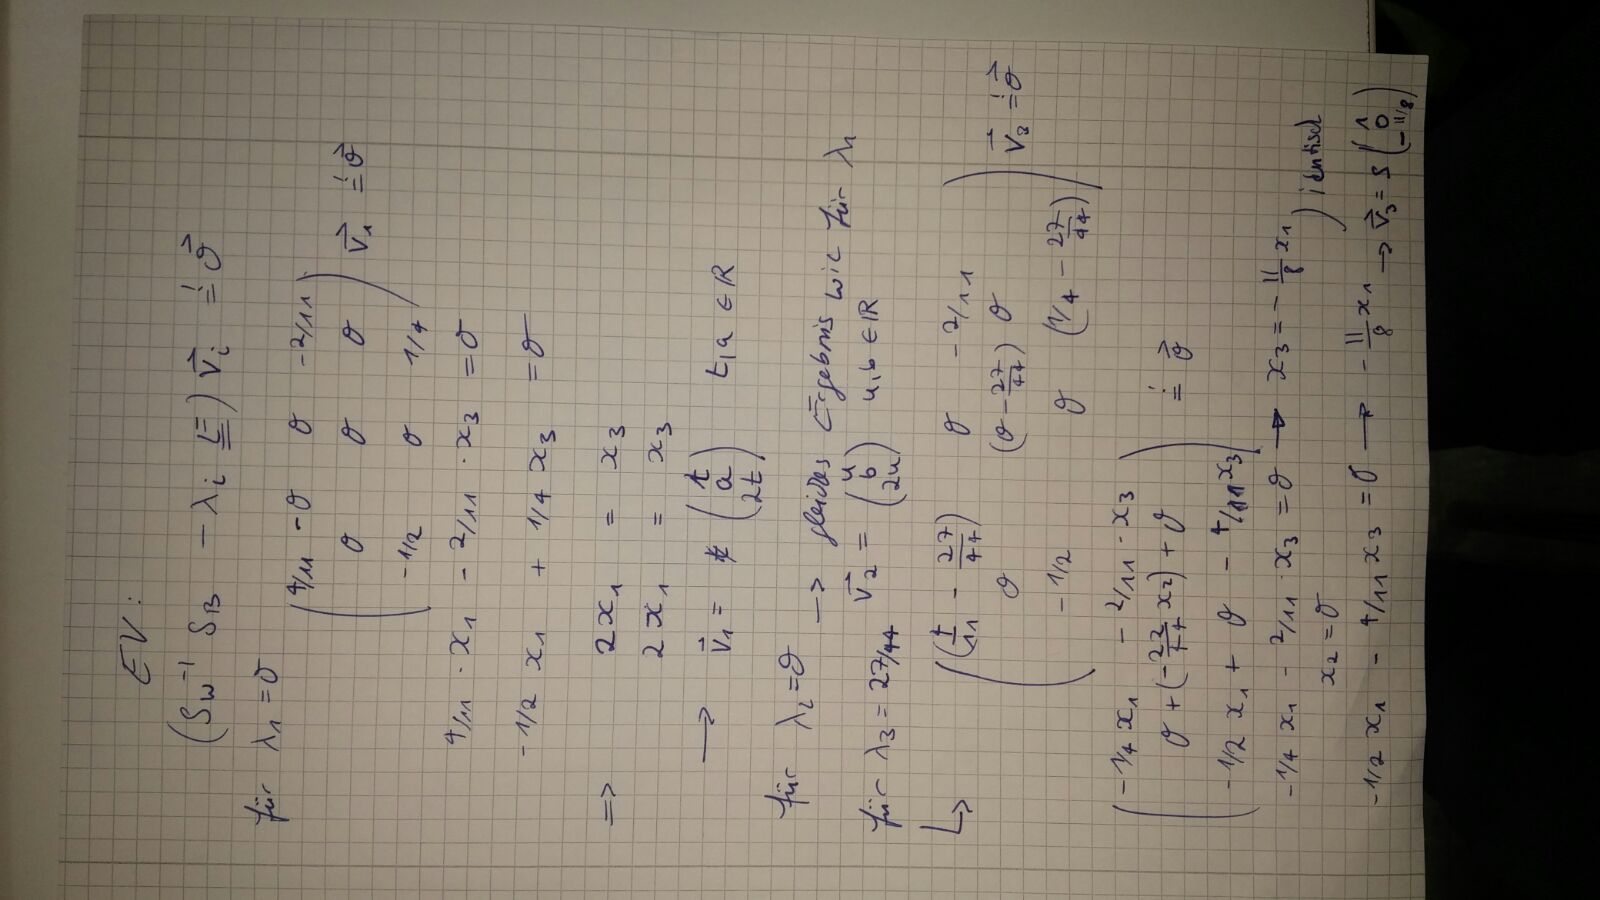 EV:
(S_W⁻¹ S_B - λ_i E) v⃗_i =! 0⃗
für λ₁ = 0
( 4/11 - 0   0   -2/11 )
( 0   0   0 ) v⃗₁ =! 0⃗
( -1/2   0   1/4 )
4/11 · x₁ - 2/11 · x₃ = 0
-1/2 x₁ + 1/4 x₃ = 0
=> 2x₁ = x₃
2x₁ = x₃
→ v⃗₁ = (t a 2t)   t, a ∈ ℝ
für λ₂ = 0 → gleiches Ergebnis wie für λ₁
v⃗₂ = (u b 2u)   u, b ∈ ℝ
für λ₃ = 27/44
↳ ( (4/11 - 27/44)   0   -2/11 )
( 0   (0 - 27/44)   0 ) v⃗₃ =! 0⃗
( -1/2   0   (1/4 - 27/44) )
( -1/4 x₁ - 2/11 · x₃ )
( 0 + (-27/44 x₂) + 0 ) =! 0⃗
( -1/2 x₁ + 0 - 4/11 x₃ )
-1/4 x₁ - 2/11 · x₃ = 0 → x₃ = -11/8 x₁
x₂ = 0 ) identisch
-1/2 x₁ - 4/11 x₃ = 0 → -11/8 x₁ → v⃗₃ = s (1 0 -11/8)